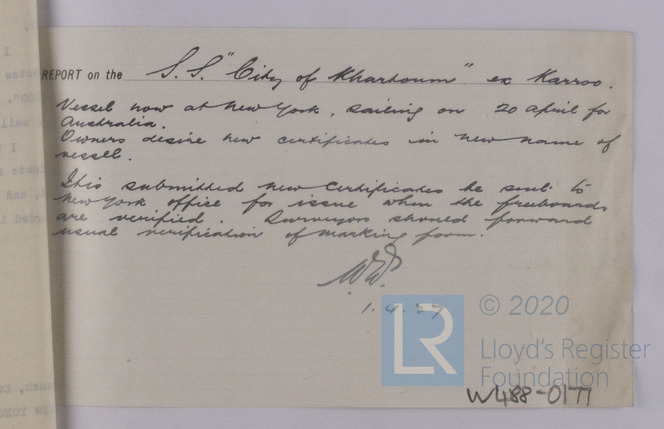 REPORT on the S.S. "City of Khartoum" ex Karroo.
Vessel now at New York, sailing on 20 April for
Australia.
Owners desire new certificates in new name of
vessel.
It is submitted new certificates be sent to
New York office for issue when the freeboards
are verified. Surveyors should forward
usual verification of marking form.
1.4.27
LR © 2020
Lloyd's Register
Foundation
W488-0177